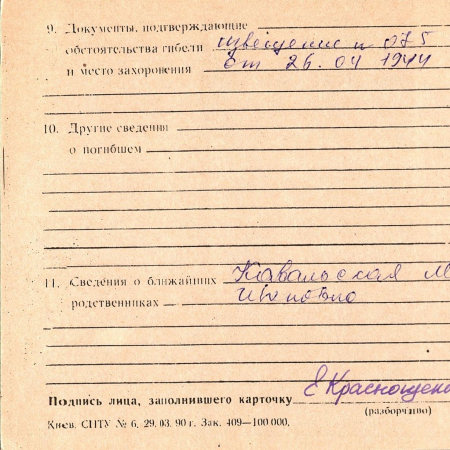 9. Документы, подтверждающие
обстоятельства гибели извещение н 075
и место захоронения От 26.04 1944
10. Другие сведения
о погибшем
11. Сведения о ближайших Кавальская М
родственниках
Подпись лица, заполнившего карточку Е Краснощек
(разборчиво)
Киев. СПТУ № 6, 29.03.90 г. Зак. 409—100 000.